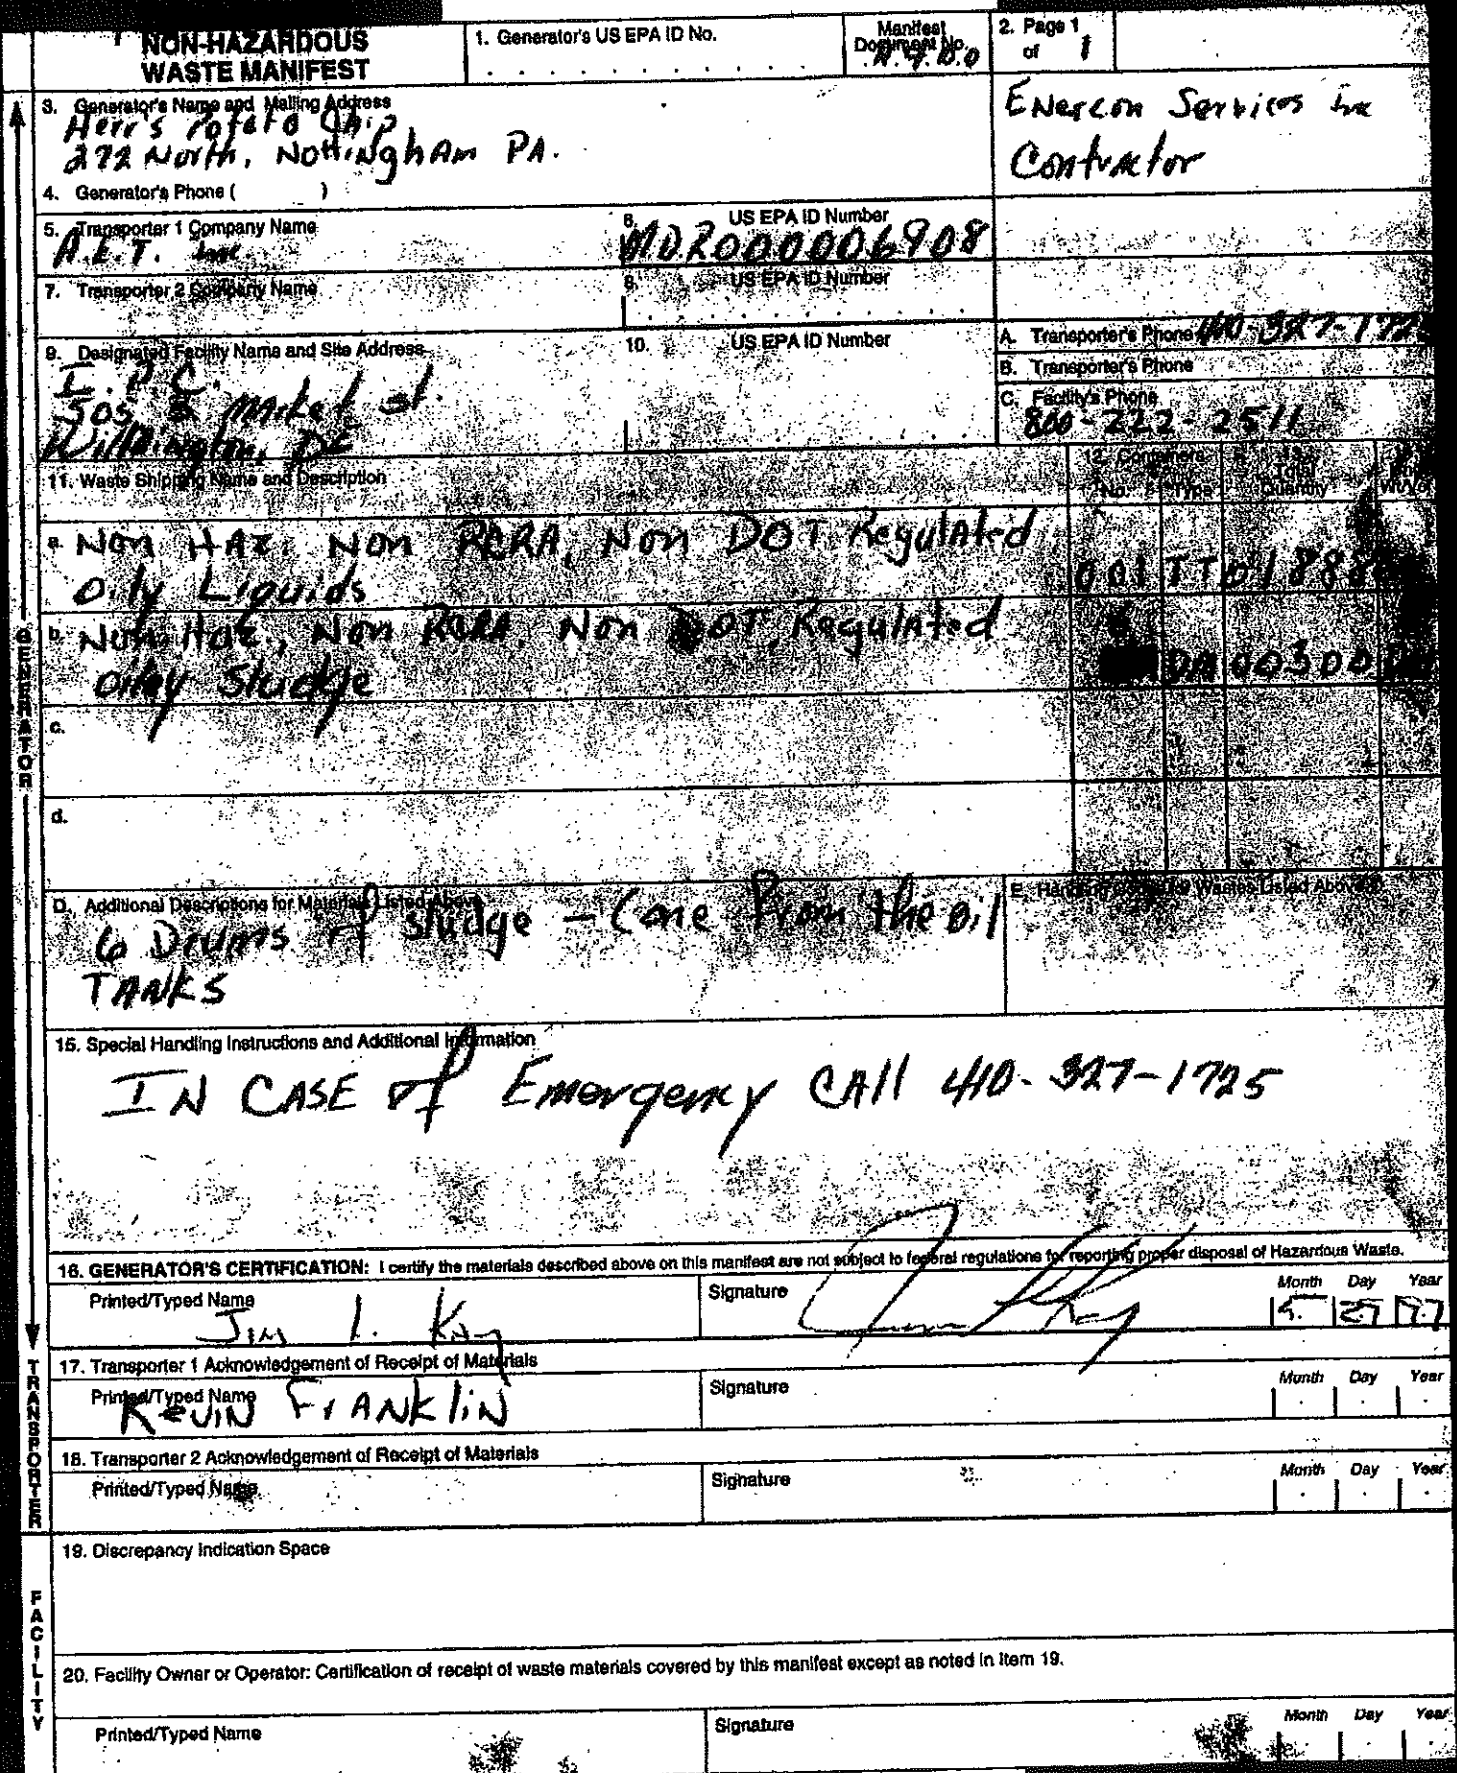 NON-HAZARDOUS
WASTE MANIFEST
1. Generator's US EPA ID No.
Manifest
Document No.
2. Page 1
of 1
3. Generator's Name and Mailing Address
Herr's Potato Chip
272 North, Nottingham PA.
Enercon Services Inc
Contractor
4. Generator's Phone ( )
5. Transporter 1 Company Name
A.E.T. Inc.
6. US EPA ID Number
MDR000006908
7. Transporter 2 Company Name
8. US EPA ID Number
9. Designated Facility Name and Site Address
I.P.C.
505 S Market st.
Wilmington, DE
10. US EPA ID Number
A. Transporter's Phone 410-327-172
B. Transporter's Phone
C. Facility's Phone
800-222-2511
11. Waste Shipping Name and Description
12. Containers
No. Type
13. Total
Quantity
a. Non HAZ. Non RCRA, Non DOT Regulated
Oily Liquids
001 TT
b. Non Haz., Non RCRA, Non DOT, Regulated
Oiley Sludge
00300
c.
d.
D. Additional Descriptions for Materials Listed Above
6 Drums of Sludge - Come From the oil
TANKS
E. Handling Codes for Wastes Listed Above
15. Special Handling Instructions and Additional Information
IN CASE of Emergency CAll 410-327-1725
16. GENERATOR'S CERTIFICATION: I certify the materials described above on this manifest are not subject to federal regulations for reporting proper disposal of Hazardous Waste.
Printed/Typed Name
Jim I. Kay
Signature
Month Day Year
5. 27 97
17. Transporter 1 Acknowledgement of Receipt of Materials
Printed/Typed Name
KEVIN FrANKliN
Signature
Month Day Year
18. Transporter 2 Acknowledgement of Receipt of Materials
Printed/Typed Name
Signature
Month Day Year
19. Discrepancy Indication Space
20. Facility Owner or Operator: Certification of receipt of waste materials covered by this manifest except as noted in Item 19.
Printed/Typed Name
Signature
Month Day Year
GENERATOR
TRANSPORTER
FACILITY